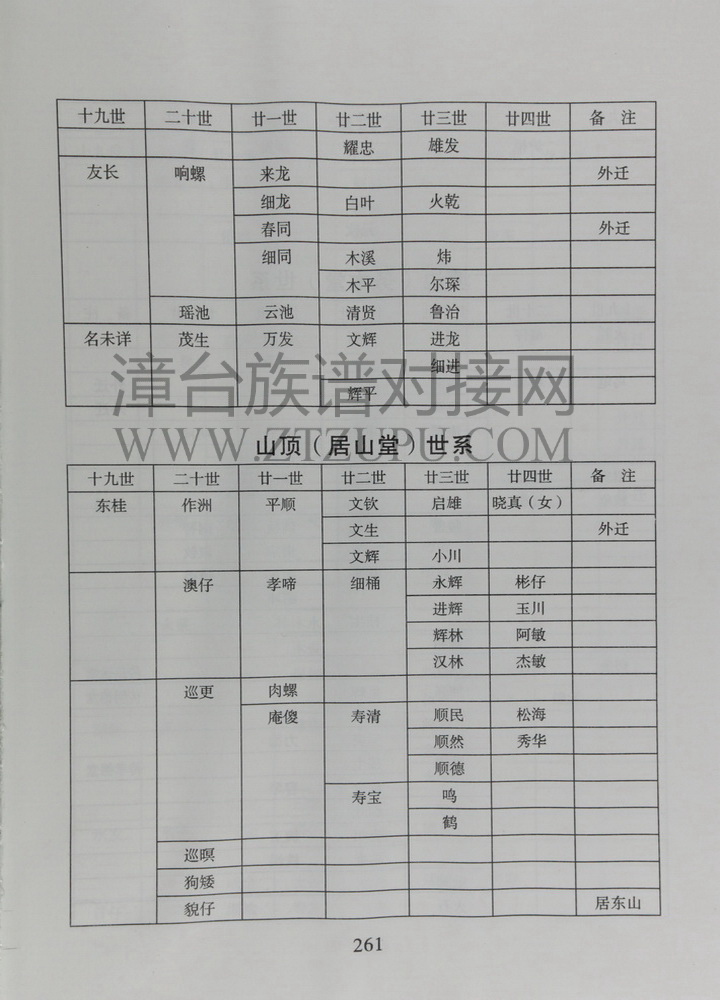 十九世 二十世 廿一世 廿二世 廿三世 廿四世 备 注
耀忠 雄发
友长 响螺 来龙 外迁
细龙 白叶 火乾
春同 外迁
细同 木溪 炜
木平 尔琛
瑶池 云池 清贤 鲁治
名未详 茂生 万发 文辉 进龙
细进
辉平
漳台族谱对接网
WWW.ZTZUPU.COM
山顶（居山堂）世系
十九世 二十世 廿一世 廿二世 廿三世 廿四世 备 注
东桂 作洲 平顺 文钦 启雄 晓真（女）
文生 外迁
文辉 小川
澳仔 孝啼 细桶 永辉 彬仔
进辉 玉川
辉林 阿敏
汉林 杰敏
巡更 肉螺
庵傻 寿清 顺民 松海
顺然 秀华
顺德
寿宝 鸣
鹤
巡暝
狗矮
貌仔 居东山
261